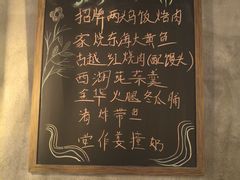 招牌两乌饭烤肉
家烧东海大黄鱼
古越红烧肉(配馒头)
西湖莼菜羹
金华火腿冬瓜脯
清炸带鱼
堂作姜撞奶